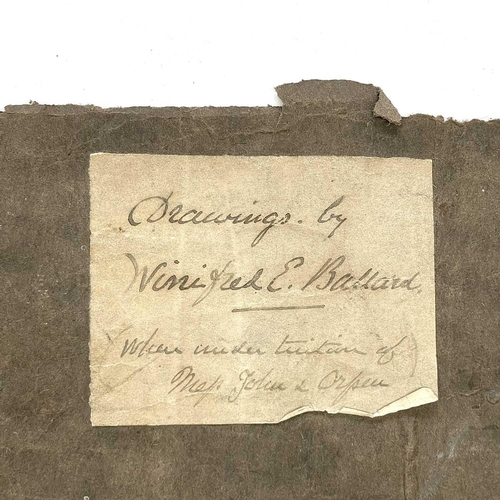 Drawings. by
Winifred E. Ballard.
(when under tuition of)
Mess John & Orpen